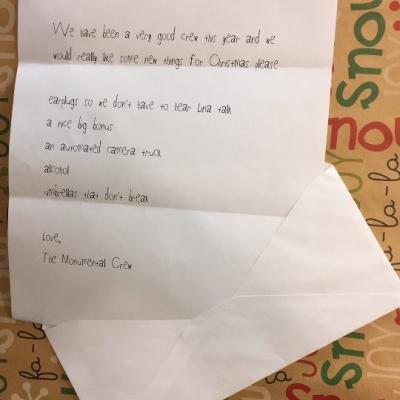 We have been a very good crew this year and we
would really like some new things for Christmas please
earplugs so we don't have to hear Luna talk
a nice big bonus
an automated camera truck
alcohol
umbrellas that don't break
Love,
The Monumental Crew
Snow
JOY
Snow
fa-la-la
fa-la
la
Snow
JOY